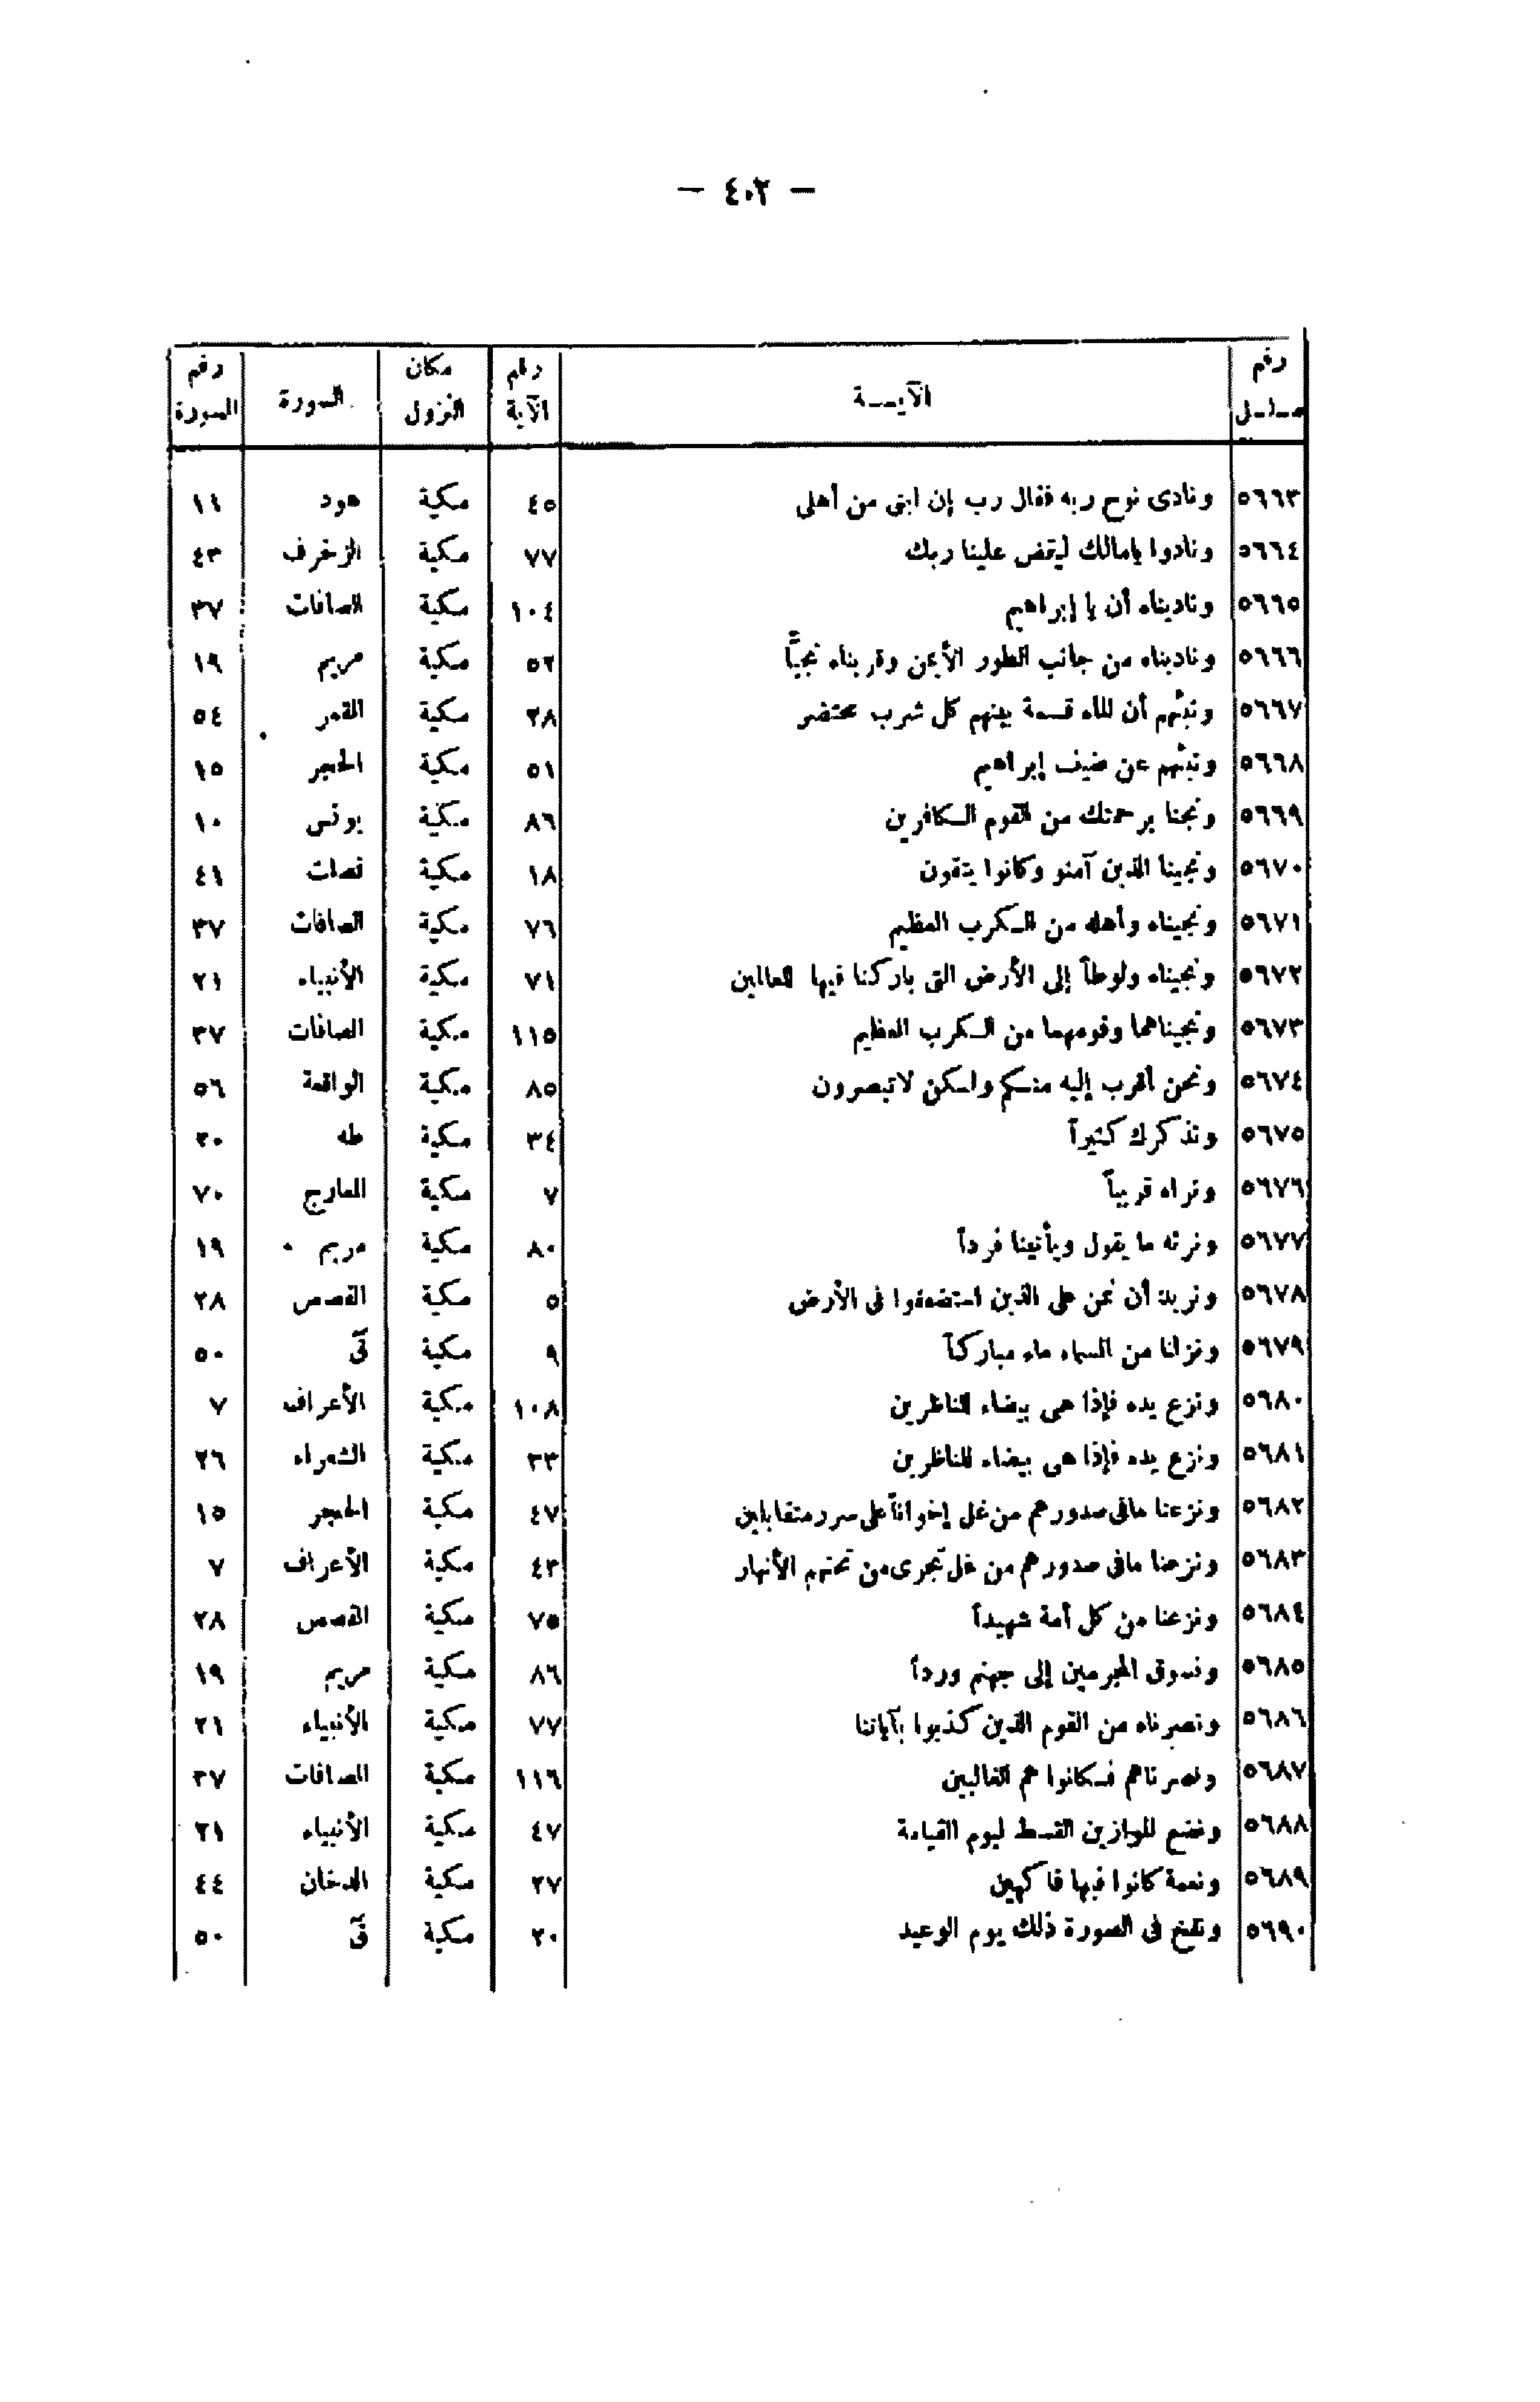 — ٤٠٢ —
رقم مسلسل الآيـــة رقم الآية مكان النزول السورة رقم السورة
٥٦٦٣ ونادى نوح ربه فقال رب إن ابنى من أهلى ٤٥ مكية هود ١١
٥٦٦٤ ونادوا يامالك ليقض علينا ربك ٧٧ مكية الزخرف ٤٣
٥٦٦٥ وناديناه أن يا إبراهيم ١٠٤ مكية الصافات ٣٧
٥٦٦٦ وناديناه من جانب الطور الأيمن وقربناه نجيًّا ٥٢ مكية مريم ١٩
٥٦٦٧ ونبئهم أن الماء قسمة بينهم كل شرب محتضر ٢٨ مكية القمر ٥٤
٥٦٦٨ ونبئهم عن ضيف إبراهيم ٥١ مكية الحجر ١٥
٥٦٦٩ ونجنا برحمتك من القوم الكافرين ٨٦ مكية يونس ١٠
٥٦٧٠ ونجينا الذين آمنو وكانوا يتقون ١٨ مكية فصلت ٤١
٥٦٧١ ونجيناه وأهله من الكرب العظيم ٧٦ مكية الصافات ٣٧
٥٦٧٢ ونجيناه ولوطاً إلى الأرض التى باركنا فيها للعالمين ٧١ مكية الأنبياء ٢١
٥٦٧٣ ونجيناهما وقومهما من الكرب العظيم ١١٥ مكية الصافات ٣٧
٥٦٧٤ ونحن أقرب إليه منكم ولكن لاتبصرون ٨٥ مكية الواقعة ٥٦
٥٦٧٥ ونذكرك كثيراً ٣٤ مكية طه ٢٠
٥٦٧٦ ونراه قريباً ٧ مكية المعارج ٧٠
٥٦٧٧ ونرثه ما يقول ويأتينا فرداً ٨٠ مكية مريم ١٩
٥٦٧٨ ونريد أن نمن على الذين استضعفوا فى الأرض ٥ مكية القصص ٢٨
٥٦٧٩ ونزلنا من السماء ماء مباركاً ٩ مكية قٓ ٥٠
٥٦٨٠ ونزع يده فإذا هى بيضاء للناظرين ١٠٨ مكية الأعراف ٧
٥٦٨١ ونزع يده فإذا هى بيضاء للناظرين ٣٣ مكية الشعراء ٢٦
٥٦٨٢ ونزعنا مافى صدورهم من غل إخواناً على سرر متقابلين ٤٧ مكية الحجر ١٥
٥٦٨٣ ونزعنا مافى صدورهم من غل تجرى من تحتهم الأنهار ٤٣ مكية الأعراف ٧
٥٦٨٤ ونزعنا من كل أمة شهيداً ٧٥ مكية القصص ٢٨
٥٦٨٥ ونسوق المجرمين إلى جهنم ورداً ٨٦ مكية مريم ١٩
٥٦٨٦ ونصرناه من القوم الذين كذبوا بآياتنا ٧٧ مكية الأنبياء ٢١
٥٦٨٧ ونصرناهم فكانوا هم الغالبين ١١٦ مكية الصافات ٣٧
٥٦٨٨ ونضع الموازين القسط ليوم القيامة ٤٧ مكية الأنبياء ٢١
٥٦٨٩ ونعمة كانوا فيها فاكهين ٢٧ مكية الدخان ٤٤
٥٦٩٠ ونفخ فى الصورة ذلك يوم الوعيد ٢٠ مكية قٓ ٥٠